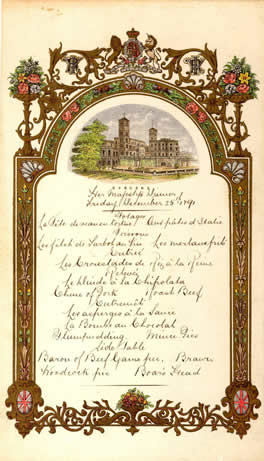 OSBORNE
Her Majesty's Dinner
Friday, December 25th
Potages
La Tête de veau en tortue Aux pâtes d'Italie
Poissons
Les filets de Turbot au Vin Les merlans frits
Entrée
Les Croustades de Riz à la Reine
Relevés
Le dinde à la Chipolata
Chine of Pork Roast Beef
Entremêts
Les asperges à la Sauce
La Bombe au Chocolat
Plumpudding Mince Pies
Side Table
Baron of Beef Game pie, Brawn
Woodcock pie Boar's Head